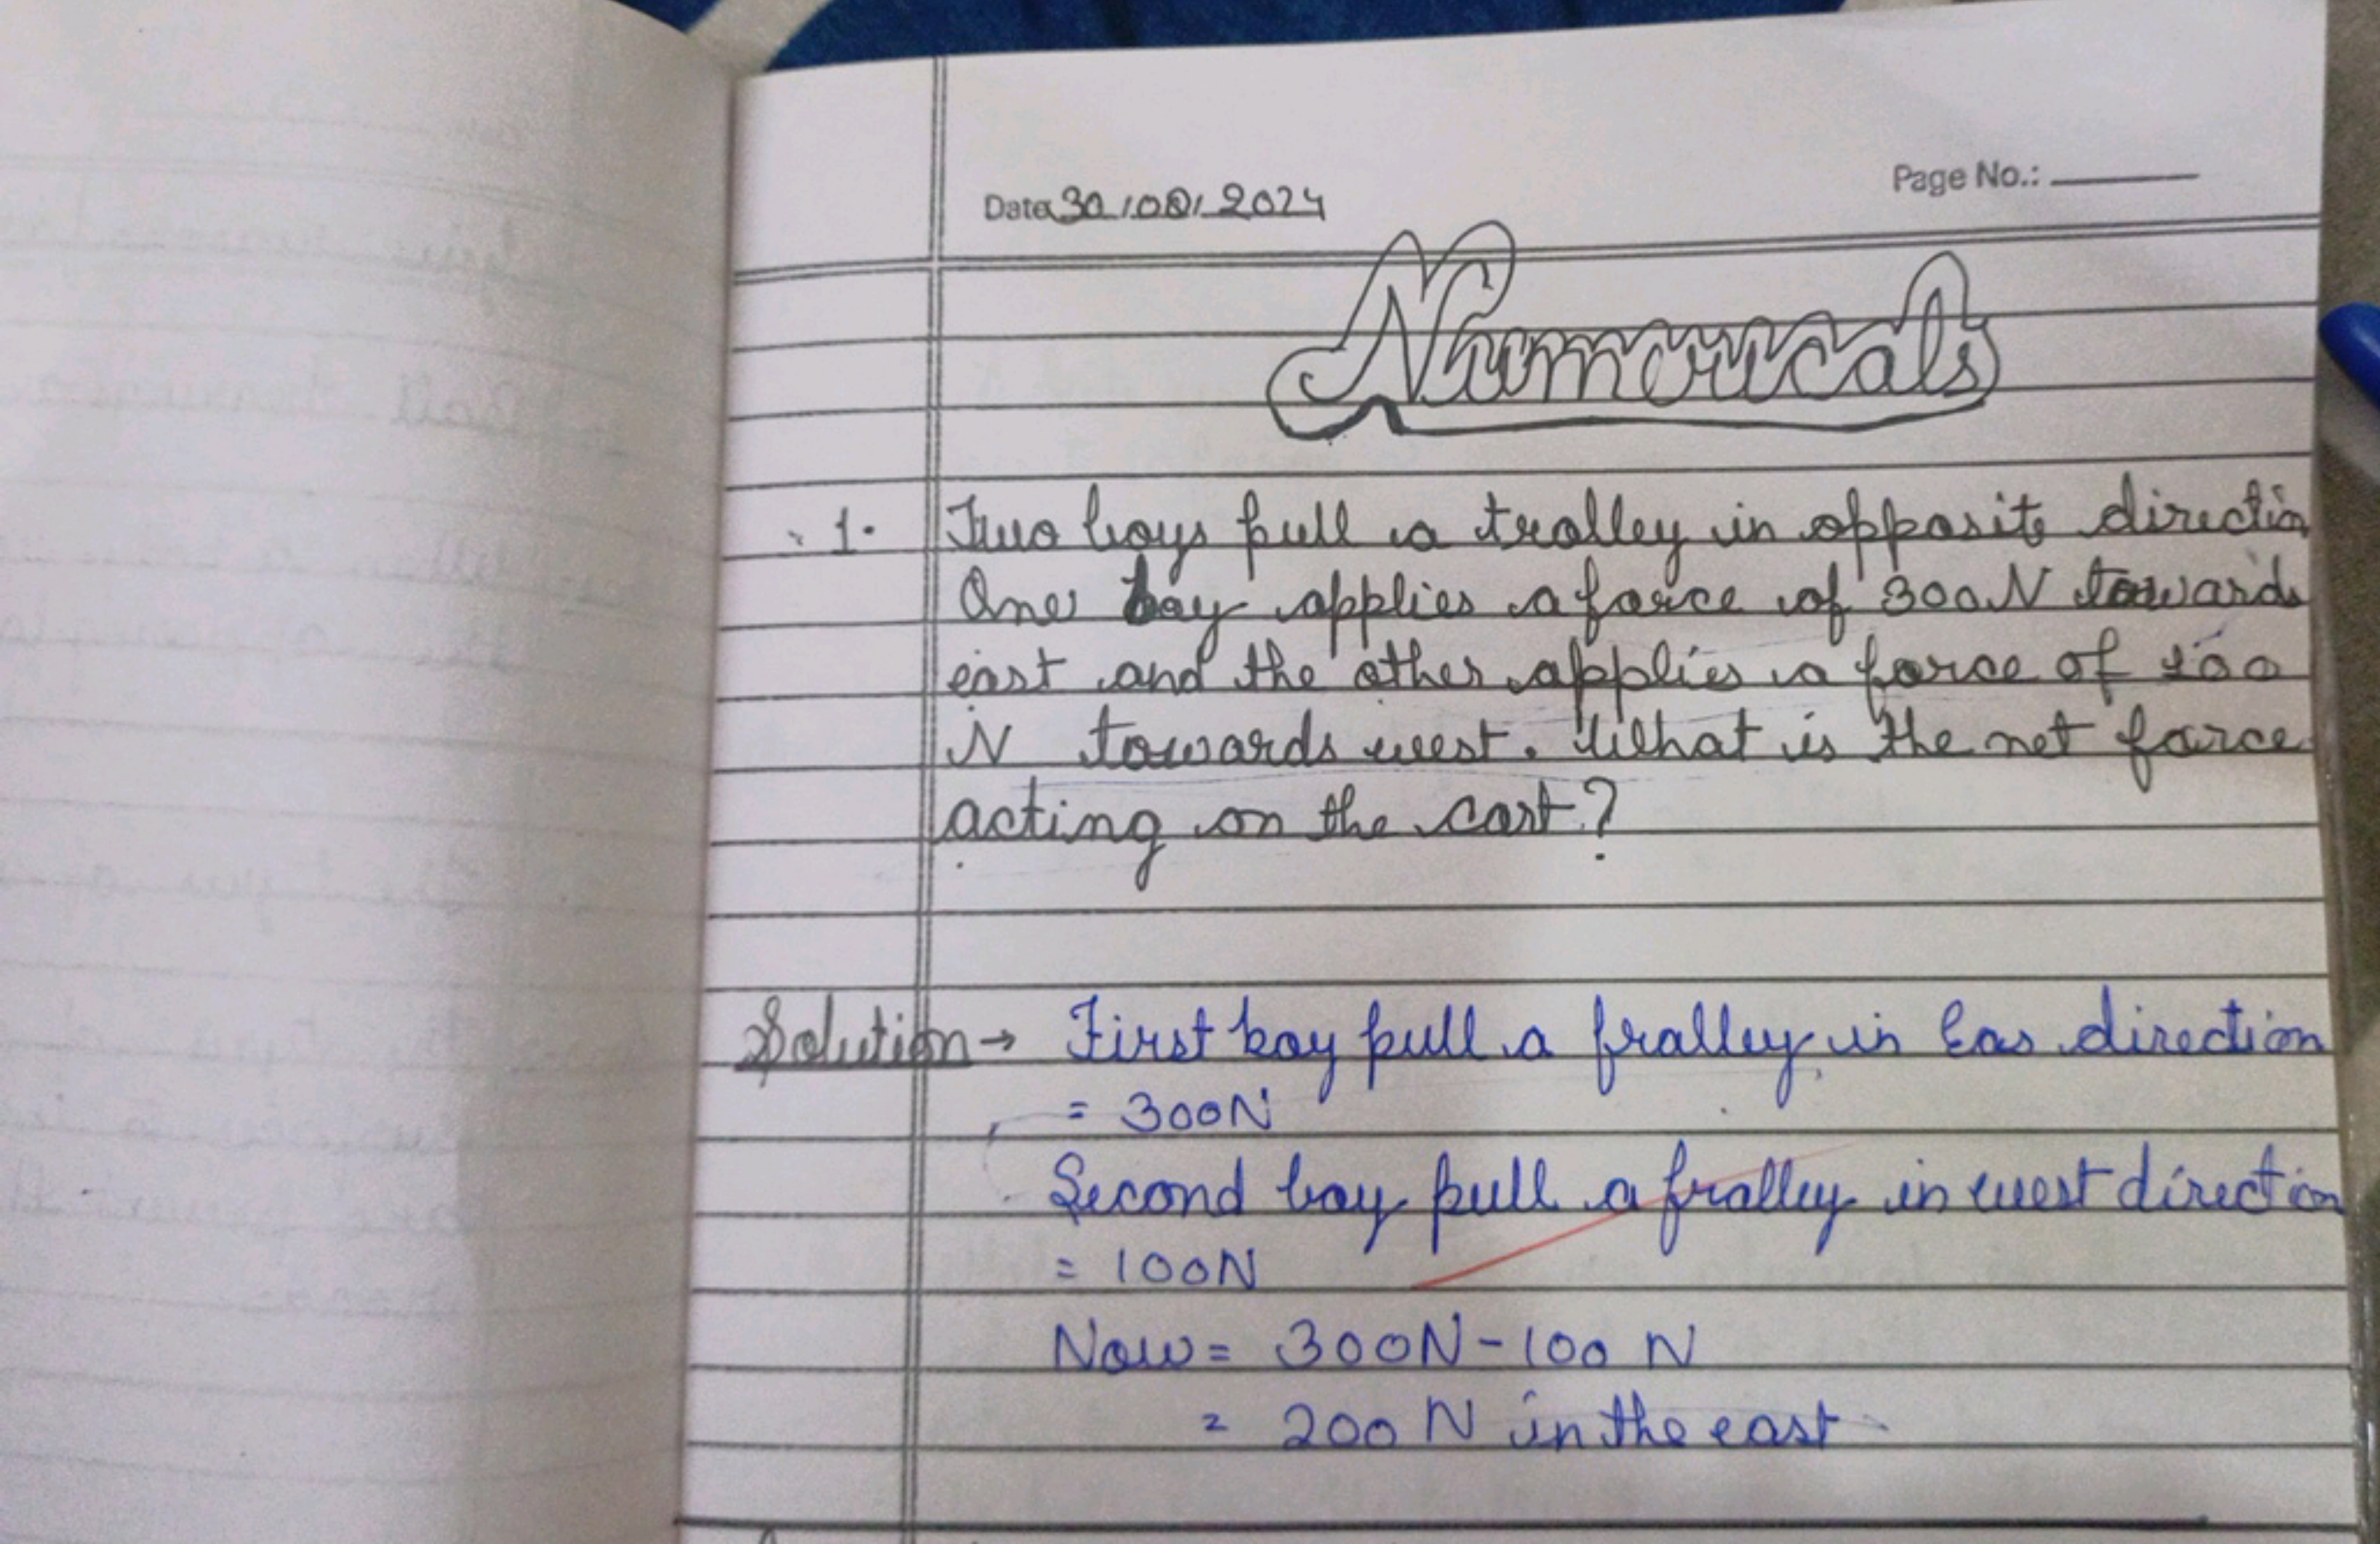 Page No.:
Date 30/08/2024
Numericals
1. Two boys pull a trolley in opposite direction
One boy applies a force of 300N towards
east and the other applies a force of 100
N towards west. What is the net force
acting on the cart?
Solution → First boy pull a fralley in Eas direction
= 300N
Second boy pull a fralley in west direction
= 100N
Now = 300N - 100 N
= 200 N in the east